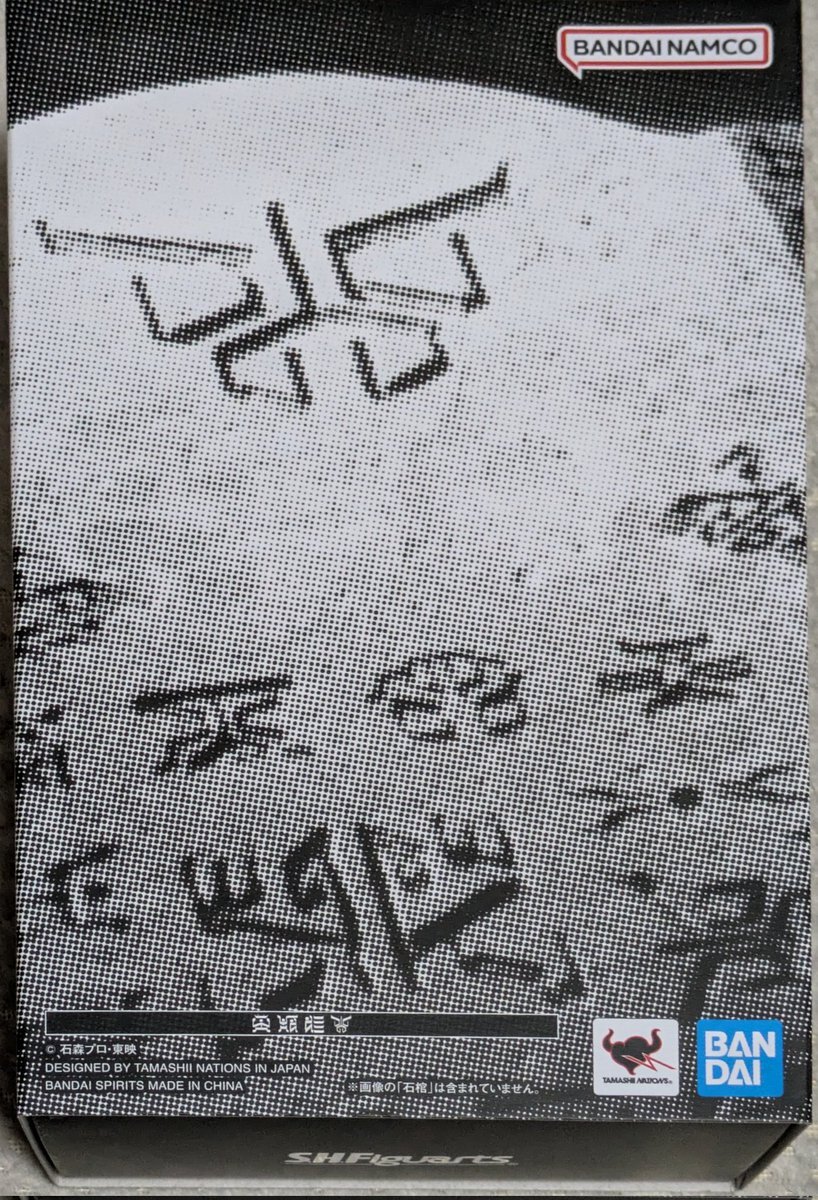 BANDAI NAMCO
© 石森プロ・東映
DESIGNED BY TAMASHII NATIONS IN JAPAN
BANDAI SPIRITS MADE IN CHINA
※画像の「石棺」は含まれていません。
TAMASHII NATIONS®
BAN
DAI
S.H.Figuarts